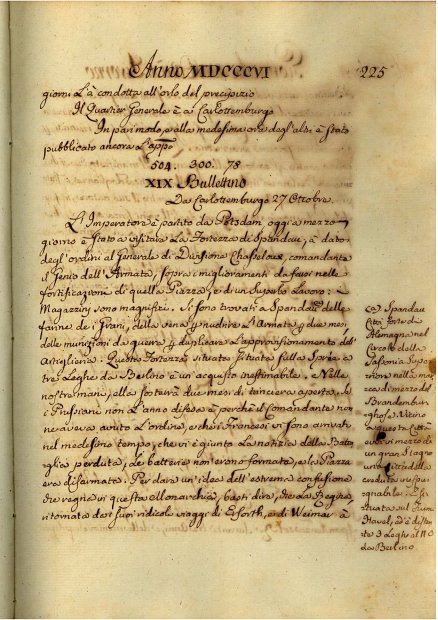 Anno MDCCCVI 225
giorni l'à condotta all'orlo del precipizio
Il Quartier Generale è a Carlottemburgo
In pari modo, e alla medesima ora degl'altri è stato
pubblicato ancora l'appo
504. 300. 78
XIX Bullettino
Da Carlottemburgo 27 Ottobre.
L'Imperatore è partito da Potsdam oggi a mezzo
giorno è stato a visitare la Fortezza di Spandau, à dato
degl'ordini al Generale di Divisione Chasseloux, comandante
il Genio dell'Armata, sopra i miglioramenti da farsi nelle
fortificazioni di quella Piazza, e di un superbo lavoro: i
Magazzini sono magnifici. Si sono trovati a Spandau delle
farine, dei grani, della vena p nudrire l'Armata p due mesi,
delle munizioni da guerra p duplicare l'approvisionamento dell'
Artiglieria. Questa Fortezza situata situata sulla Sprèe a
tre Leghe da Berlino è un'acquisto inestimabile. Nelle
nostre mani, ella sosterà due mesi di trinciera aperta. Se
i Prussiani non l'anno difesa è perchè il Comandante non
ne aveva avuto l'ordine, e che i Francesi vi sono arrivati
nel medesimo tempo, che vi è giunta la notizia della Batta
glia perduta, le batterie non erono formate, e la Piazza
era disarmata. Per dare un'idea dell'estrema confusione
che regna in questa Monarchia, basti dire, che la Regina
ritornata da i suoi ridicoli viaggi di Erforth, e di Weimar à
Spandau
Città forte di
Alemagna nel
Circolo della
Sassonia Supe
riore nella mar
ca di mezzo del
Brandembur
ghese. Vicino
a questa Città
evvi in mezzo di
un gran Stagno
una Cittadella
creduta inespu
gnabile. È si
tuata sul Fiume
Havel, ed è distan
te 3 Leghe al NO
da Berlino